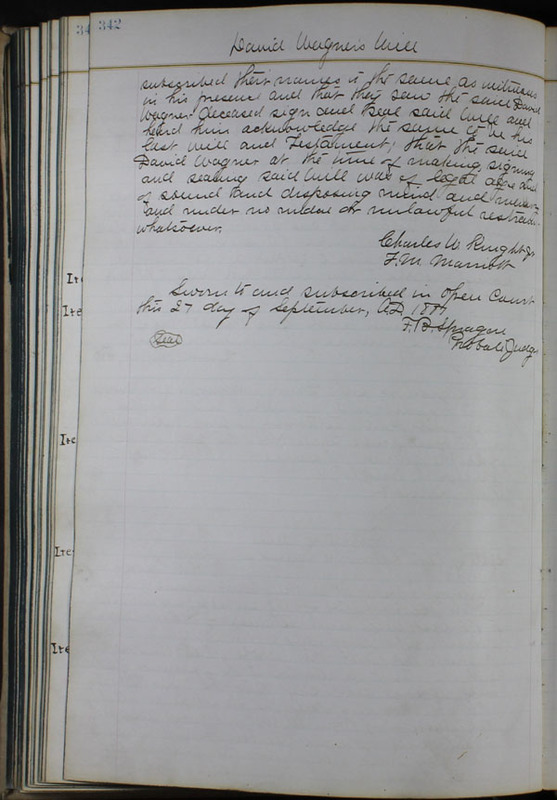 34 342
David Wagner's Will
subscribed their names to the same as witnesses
in his presence and that they saw the said David
Wagner deceased sign and seal said Will and
heard him acknowledge the same to be his
last will and Testament; that the said
David Wagner at the time of making, signing
and sealing said Will was of legal age and
of sound and disposing mind and memory
and under no undue or unlawful restraint
whatsoever.
Charles W. Knight Jr
F. M. Marriott
Sworn to and subscribed in Open Court
this 27 day of September, A.D. 1887
F. B. Sprague
Probate Judge
Seal
Ite
Ite
Ite
Ite
Ite